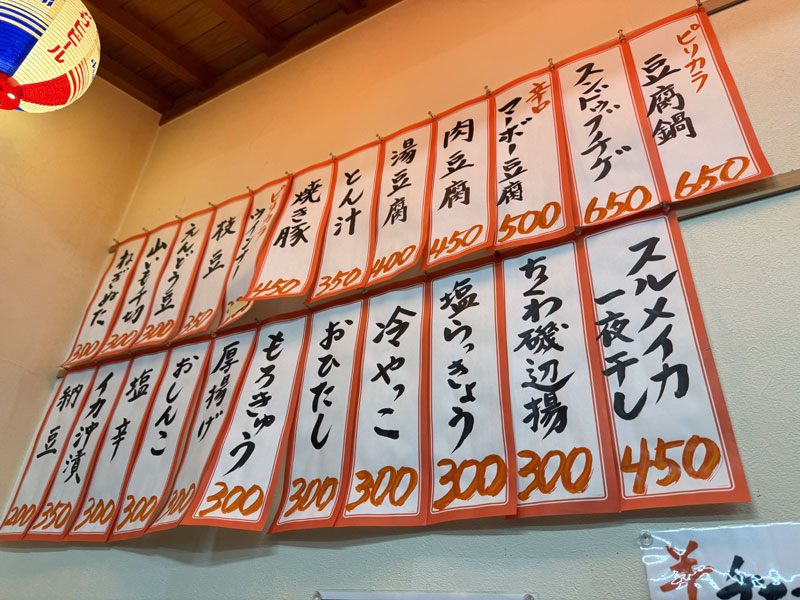 ピリカラ
豆腐鍋
650
スンドゥブチゲ
650
辛口
マーボー豆腐
500
肉豆腐
450
湯豆腐
400
とん汁
350
焼き豚
450
ピリカラ
ウインナー
枝豆
350
えんどう豆
300
山いも千切
300
ねぎぬた
300
スルメイカ
一夜干し
450
ちくわ磯辺揚
300
塩らっきょう
300
冷やっこ
300
おひたし
300
もろきゅう
300
厚揚げ
300
おしんこ
300
塩辛
300
イカ沖漬
350
納豆
200